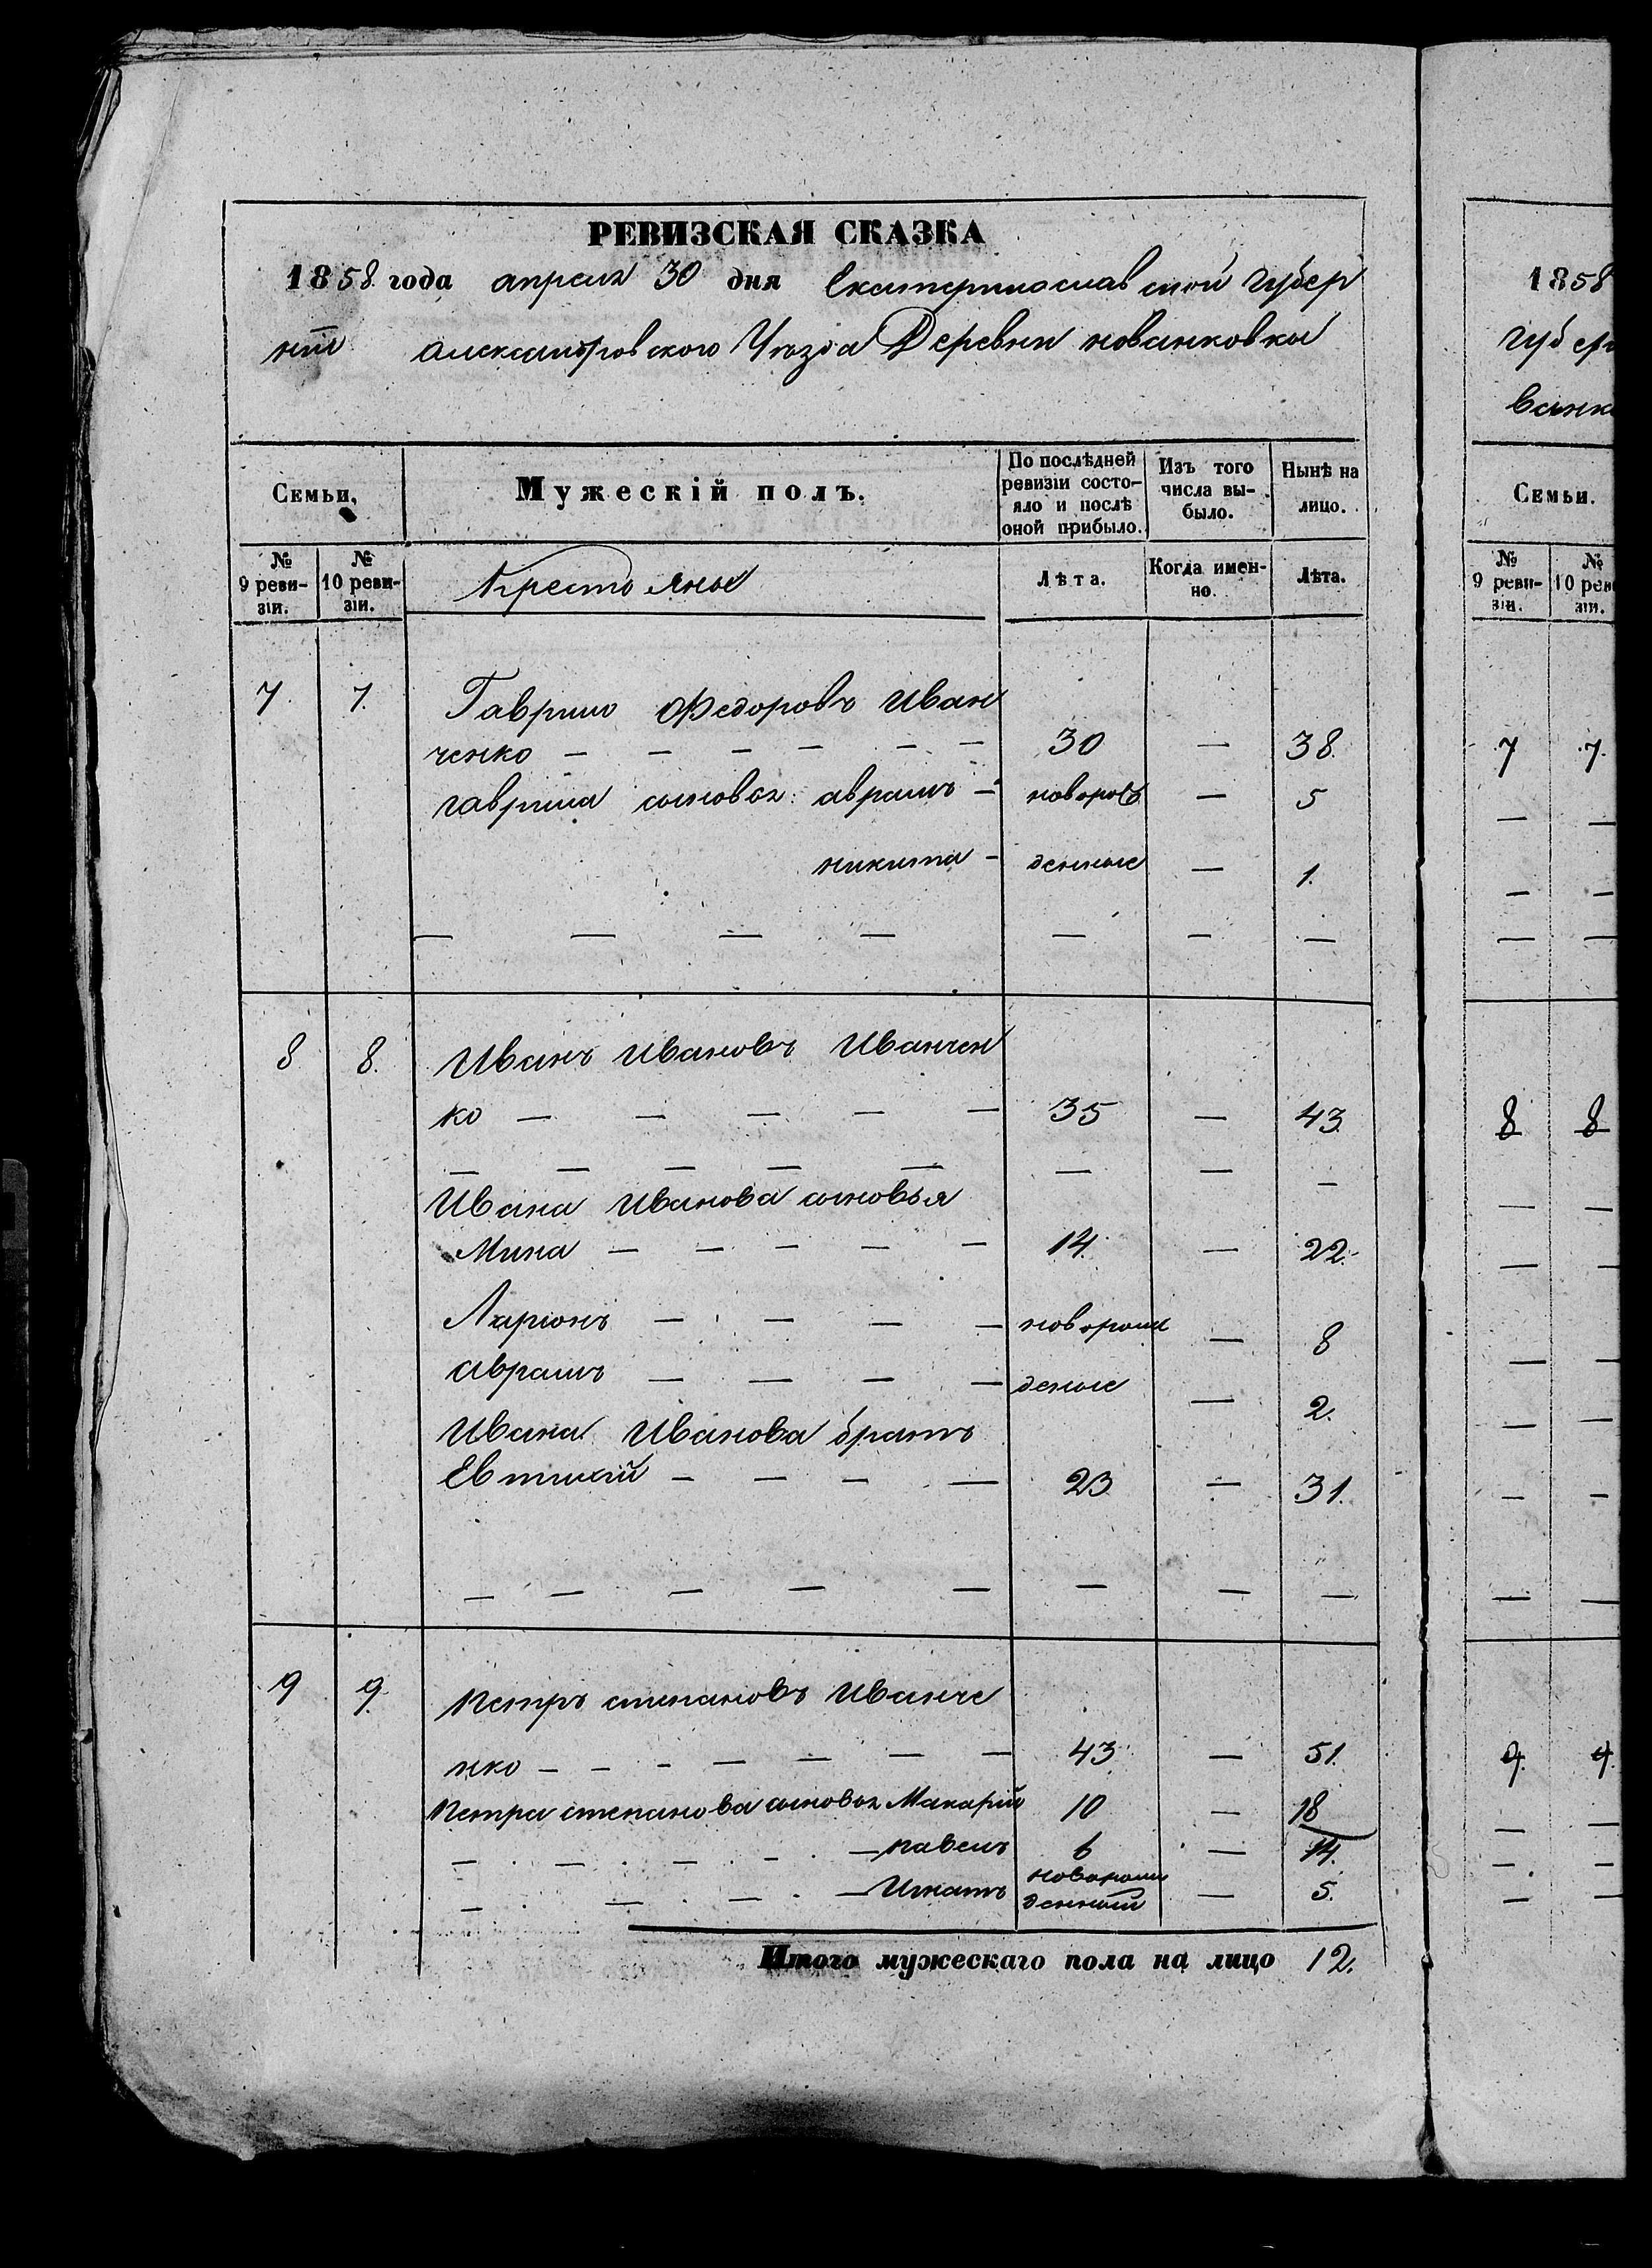 РЕВИЗСКАЯ СКАЗКА
1858 года апреля 30 дня Екатеринославской губер
нии александровского Уѣзда Деревни новаиковки
Семьи.
Мужескій полъ.
По послѣдней ревизіи состо-яло и послѣ оной прибыло.
Изъ того числа вы-было.
Нынѣ на лицо.
№ 9 реви-зіи.
№ 10 реви-зіи.
Крестьяны
Лѣта.
Когда имен-но.
Лѣта.
7. 7. Гаврило Федоровъ Иван
ченко — — — — — — 30 — 38.
гаврила сыновья: аврамъ — новорож — 5
никита — денные — 1.
— — — — — — —
8 8. Иванъ Ивановъ Иванчен
ко — — — — — 35 — 43
— — — — — — — —
Ивана Иванова сыновья
Мина — — — — — 14. — 22.
Ларіонъ — — — — новорож — 8
аврамъ — — — — деные — 2.
Ивана Иванова братъ
Евтихий — — — — 23 — 31.
— — — — — — — —
9 9. Петръ степановъ Иванче
нко — — — — — — — 43 — 51.
Петра степанова сыновья Макарий 10 — 18
— — — — — павелъ 6 — 14.
— — — — Игнатъ новорож
денный — 5.
Итого мужескаго пола на лицо 12.
1858
губер
ванк
Семьи.
№ 9 реви-зіи.
№ 10 рев
зіи.
7 7.
— —
— —
— —
8 8
— —
— —
— —
— —
— —
— —
9. 9.
— —
— —
— —